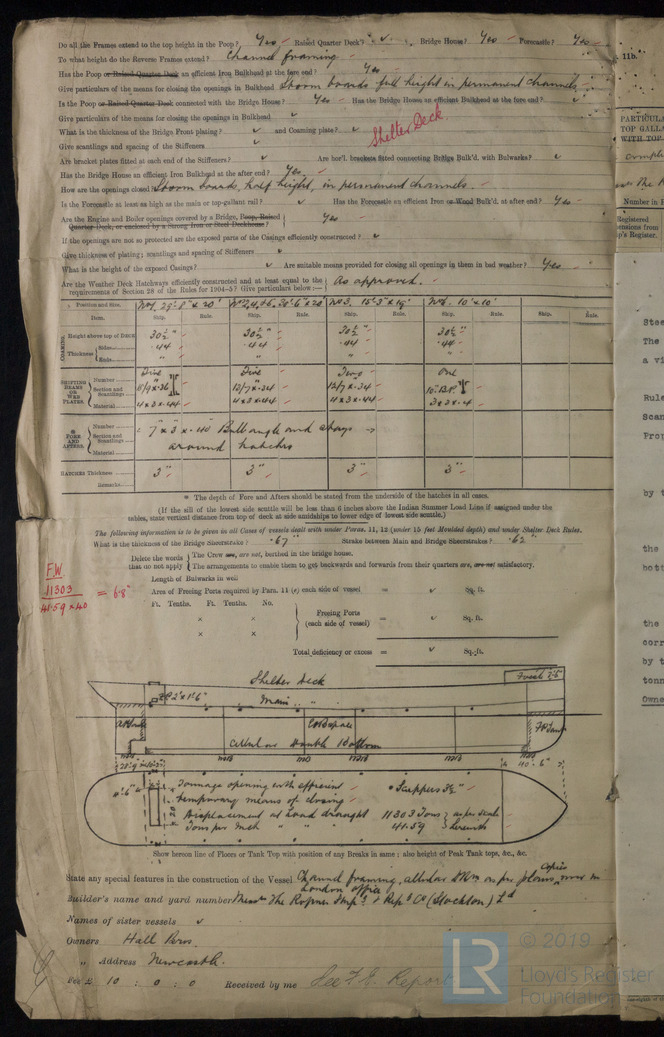 Do all the Frames extend to the top height in the Poop? Yes Raised Quarter Deck? ✓ Bridge House? Yes Forecastle? Yes
To what height do the Reverse Frames extend? Channel framing
Has the Poop or Raised Quarter Deck an efficient Iron Bulkhead at the fore end? Yes
Give particulars of the means for closing the openings in Bulkhead Storm boards full height in permanent channels
Is the Poop or Raised Quarter Deck connected with the Bridge House? Yes Has the Bridge House an efficient Bulkhead at the fore end? ✓
Give particulars of the means for closing the openings in Bulkhead ✓
What is the thickness of the Bridge Front plating? ✓ and Coaming plate? ✓
Shelter Deck
Give scantlings and spacing of the Stiffeners ✓
Are bracket plates fitted at each end of the Stiffeners? ✓ Are hor'l. brackets fitted connecting Bridge Bulk'd. with Bulwarks? ✓
Has the Bridge House an efficient Iron Bulkhead at the after end? Yes
How are the openings closed? Storm boards, half height, in permanent channels.
Is the Forecastle at least as high as the main or top-gallant rail? ✓ Has the Forecastle an efficient Iron or Wood Bulk'd. at after end? Yes
Are the Engine and Boiler openings covered by a Bridge, Poop, Raised
Quarter Deck, or enclosed by a Strong Iron or Steel Deckhouse? Yes
If the openings are not so protected are the exposed parts of the Casings efficiently constructed? ✓
Give thickness of plating; scantlings and spacing of Stiffeners ✓
What is the height of the exposed Casings? ✓ Are suitable means provided for closing all openings in them in bad weather? Yes
Are the Weather Deck Hatchways efficiently constructed and at least equal to the
requirements of Section 28 of the Rules for 1904-5? Give particulars below:— As approved.
Position and Size.
Item. Ship. Rule. Ship. Rule. Ship. Rule. Ship. Rule. Ship. Rule.
COAMING
Height above top of DECK 30½" 30½" 30½" 30½"
Thickness Sides .44 .44 .44 .44
Ends " " " "
SHIFTING BEAMS OR WEB PLATES
Number Five Five Two One
Section and Scantlings
Material
FORE AND AFTERS
Number
Section and Scantlings 7 x 3 x .40 Bulb angle and stays
Material around hatches
HATCHES Thickness 3" 3" 3" 3"
Remarks
* The depth of Fore and Afters should be stated from the underside of the hatches in all cases.
(If the sill of the lowest side scuttle will be less than 6 inches above the Indian Summer Load Line if assigned under the
tables, state vertical distance from top of deck at side amidships to lower edge of lowest side scuttle.)
The following information is to be given in all Cases of vessels dealt with under Paras. 11, 12 (under 15 feet Moulded depth) and under Shelter Deck Rules.
What is the thickness of the Bridge Sheerstrake? .67" Strake between Main and Bridge Sheerstrakes? .62"
Delete the words that do not apply
The Crew are, are not, berthed in the bridge house.
The arrangements to enable them to get backwards and forwards from their quarters are, are not satisfactory.
F.W.
11303
41.59 x 40 = 6.8"
Length of Bulwarks in well
Area of Freeing Ports required by Para. 11 (e) each side of vessel = ✓ Sq. ft.
Ft. Tenths. Ft. Tenths. No.
× ×
× ×
Freeing Ports
(each side of vessel) = ✓ Sq. ft.
Total deficiency or excess = ✓ Sq. ft.
Shelter Deck
Main
Cellular Double Bottom
Tonnage opening with efficient
temporary means of closing
Scuppers 3½"
Displacement at load draught 11303 Tons as per scale
Tons per Inch " " " 41.59 herewith
Show hereon line of Floors or Tank Top with position of any Breaks in same; also height of Peak Tank tops, &c., &c.
State any special features in the construction of the Vessel Channel framing, cellular
London office
Builder's name and yard number Messrs The Ropner Ship & Rep Co (Stockton) Ld
Names of sister vessels ✓
Owners Hall Bros.
" Address Newcastle.
Fee £ 10 : 0 : 0 Received by me See F.E. Report
LR
© 2019
Lloyd's Register
Foundation
11b.
PARTICULA
TOP GALLA
WITH TOP
Number in R
Registered
ensions from
ip's Register.
Stee
The
a vi
Rule
Scan
Prop
by t
the
bott
the
corr
by t
tonn
Owne